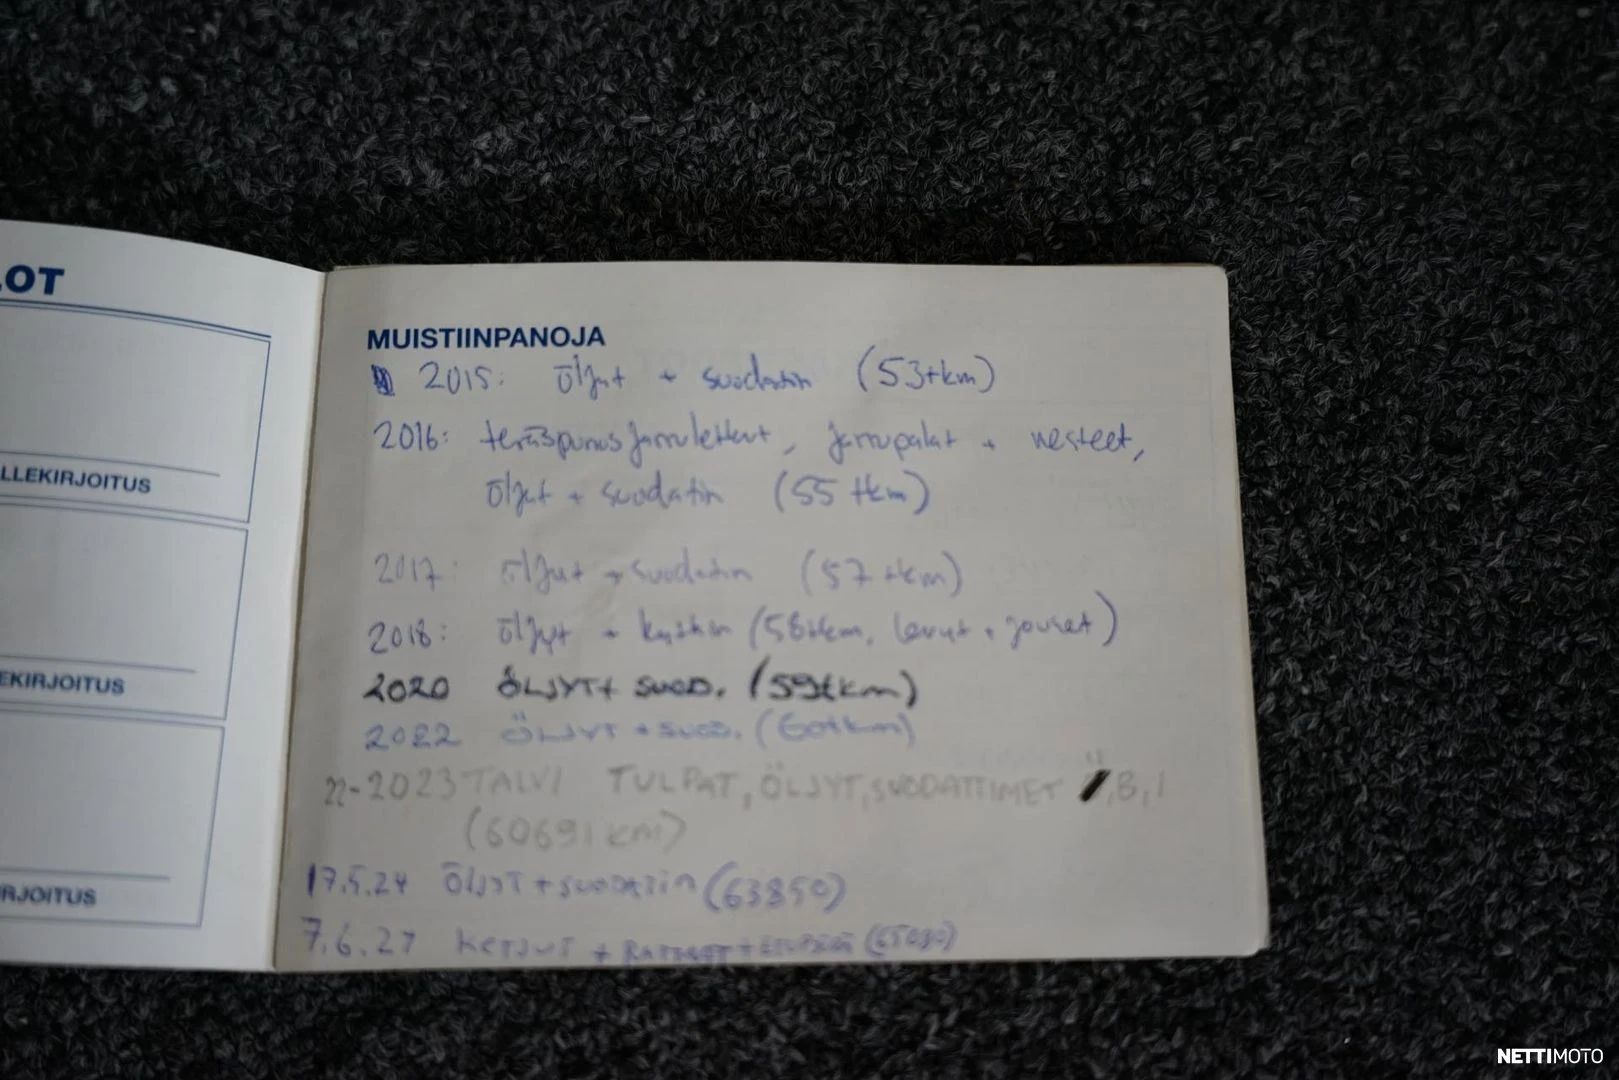 LOT
LLEKIRJOITUS
EKIRJOITUS
RJOITUS
MUISTIINPANOJA
2015: öljyt + suodatin (53tkm)
2016: teräspunosjarruletkut, jarrupalat + nesteet,
öljyt + suodatin (55 tkm)
2017: öljyt + suodatin (57 tkm)
2018: öljyt + kytkin (58tkm, levyt + jouset)
2020 ÖLJYT+ SUOD. (59tkm)
2022 ÖLJYT + SUOD. (60tkm)
22-2023 TALVI TULPAT, ÖLJYT, SUODATTIMET Ö, B, I
(60691 km)
17.5.24 ÖLJYT + SUODATIN (63850)
KETJUT + RATTAAT +
NETTIMOTO